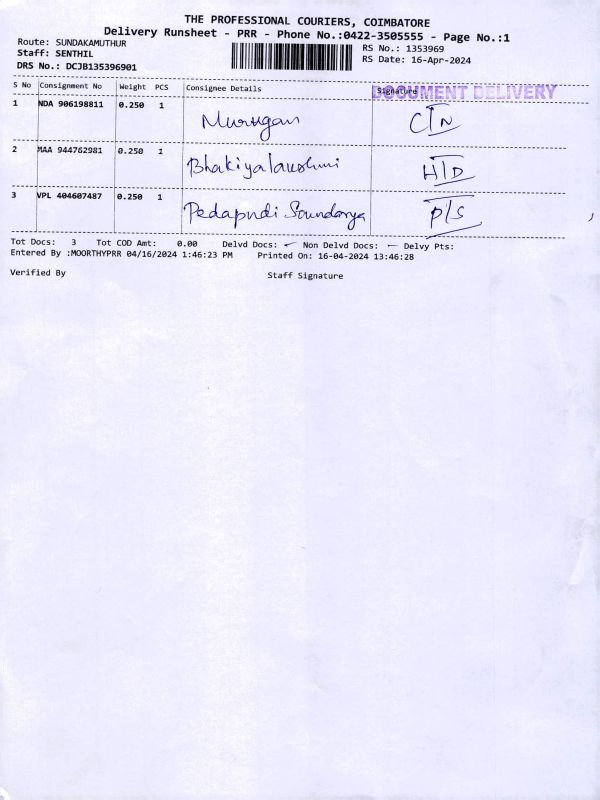 THE PROFESSIONAL COURIERS, COIMBATORE
Delivery Runsheet - PRR - Phone No.:0422-3505555 - Page No.:1
Route: SUNDAKAMUTHUR
RS No.: 1353969
Staff: SENTHIL
RS Date: 16-Apr-2024
DRS No.: DCJB135396901
DOCUMENT DELIVERY
S No Consignment No Weight PCS Consignee Details Signature
1 NDA 906198811 0.250 1 Murugan CTN
2 MAA 944762981 0.250 1 Bhakiyalaxshmi HTD
3 VPL 404607487 0.250 1 Pedapudi Soundarya P/S
Tot Docs: 3 Tot COD Amt: 0.00 Delvd Docs: Non Delvd Docs: Delvy Pts:
Entered By :MOORTHYPRR 04/16/2024 1:46:23 PM Printed On: 16-04-2024 13:46:28
Verified By Staff Signature